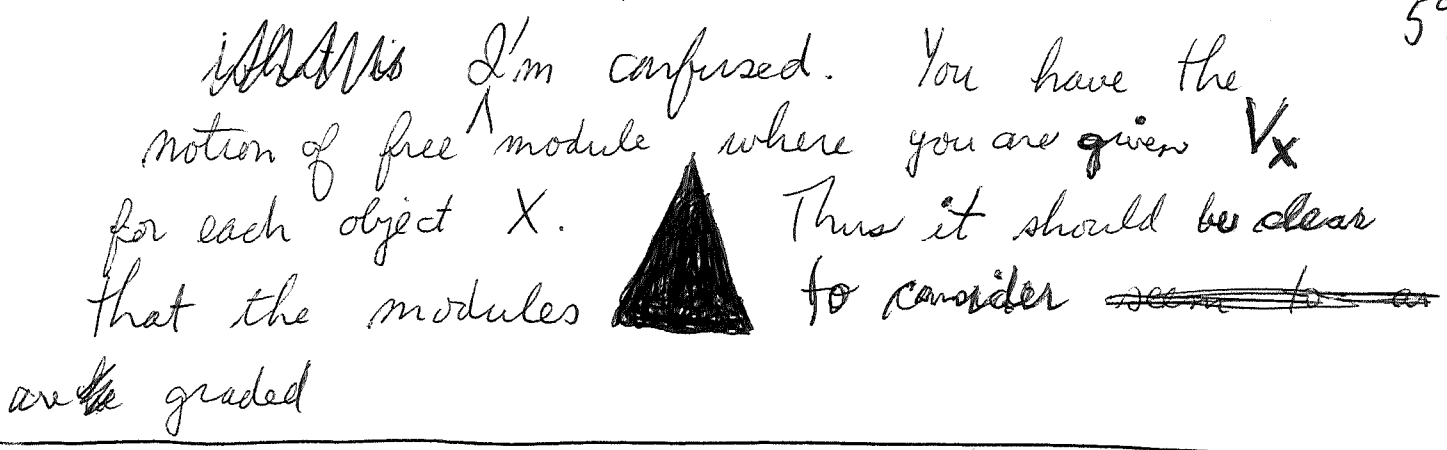 I'm confused. You have the
notion of free ^ module where you are given V_X
for each object X. Thus it should be clear
that the modules to consider
are graded